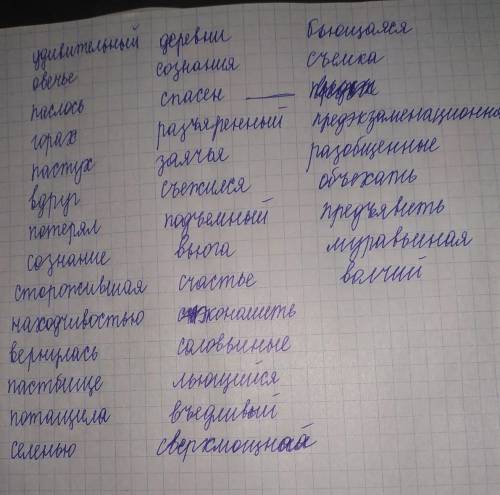 удивительный деревни бьющаяся
овечье сознания съемка
паслось спасен —
горах разъяренный предэкзаменационная
пастух заячья разобщенные
вдруг съежился объехать
потерял подъемный предъявить
сознание вьюга муравьиная
сторожившая счастье волчий
находчивостью сэкономить
вернулась соловьиные
пастбище льющийся
потащила въедливый
селенью сверхмощной